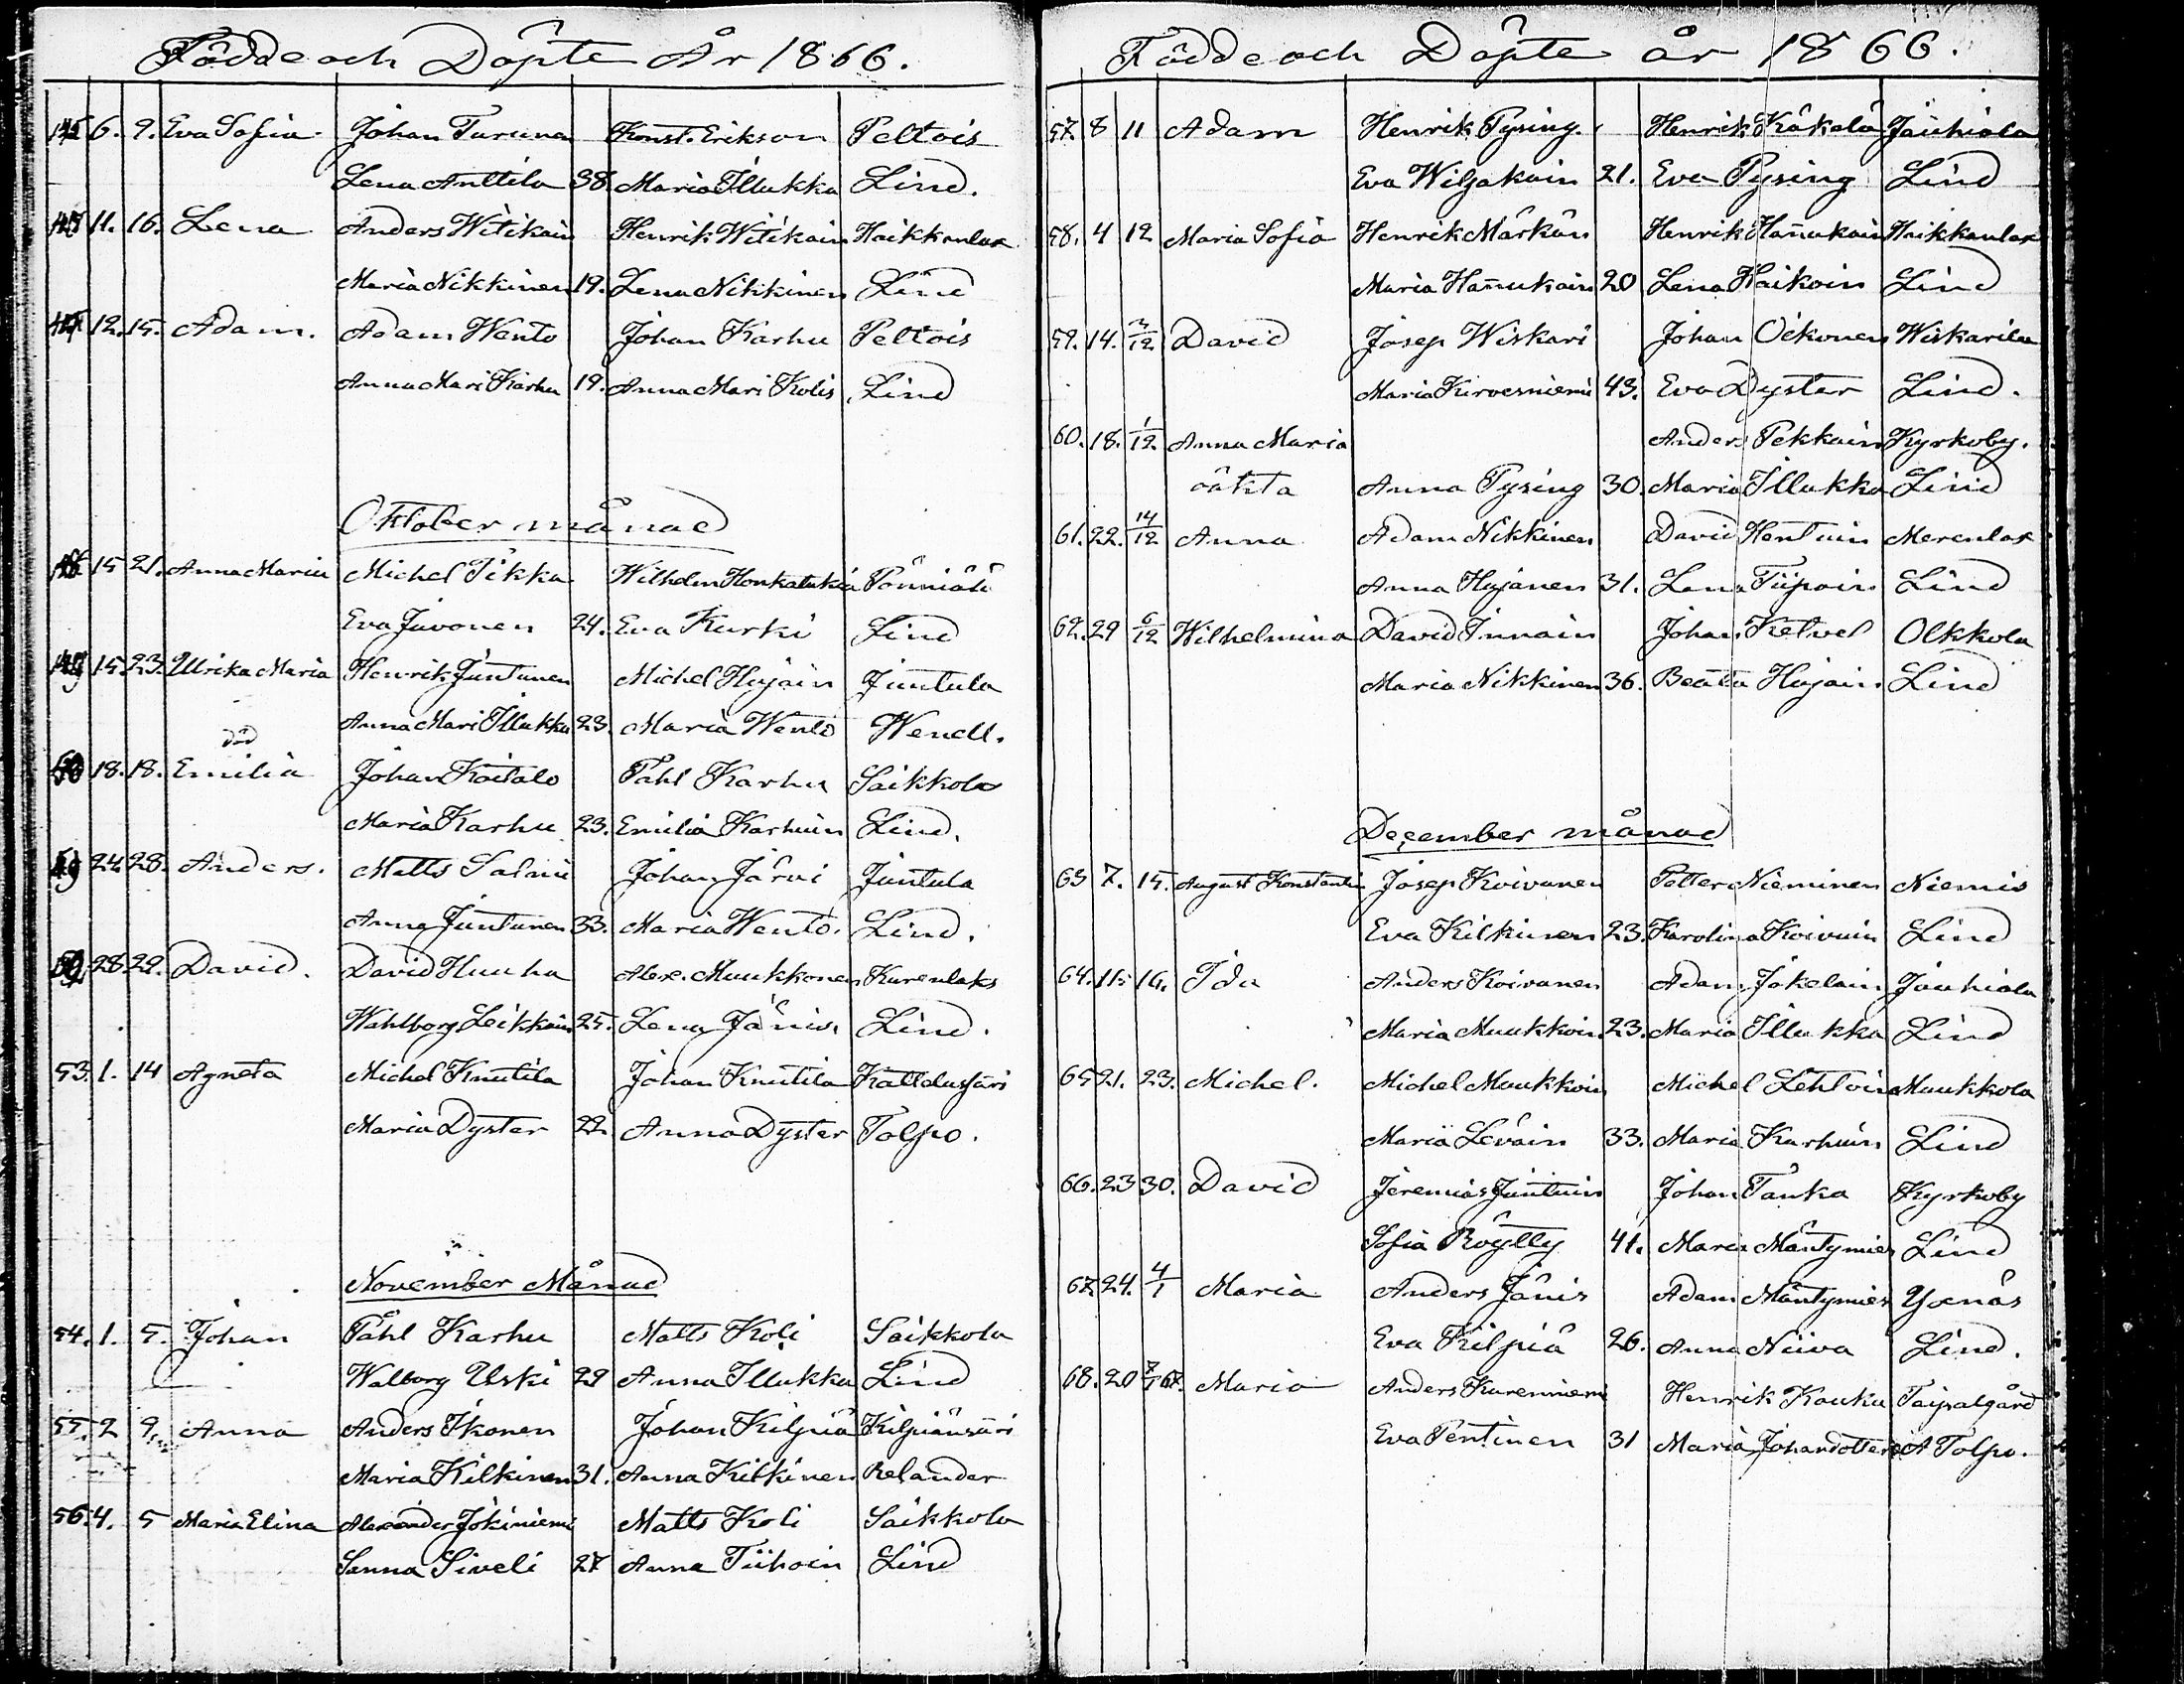 Födde och Döpte År 1866.
145 6. 9. Eva Sofia Johan Turunen Konst. Erikson Peltois
Lena Anttila 38. Maria Illukka Lind.
11. 16. Lena Anders Witikain Henrik Witikain Haikkanlax
Maria Nikkinen 19. Lena Nikkinen Lind
12. 15. Adam. Adam Wento Johan Karhu Peltois
Anna Mari Karhu 19. Anna Mari Kolis Lind
Oktober månad
15 21. Anna Maria Michel Tikka Wilhelm Honkatukia
Eva Juvonen 24. Eva Kurki Lind
15. 23. Ulrika Maria Henrik Juntunen Michel Hujain Juntula
Anna Mari Illukka 23. Maria Wento Wendl.
död
50 18. 18. Emilia Johan Koitalo Påhl Karhu Saikkola
Maria Karhu 23. Emilia Karhuin Lind.
24 28. Anders. Matts Salmi Johan Järvi Juntula
Anna Juntunen 33. Maria Wento. Lind.
28. 29. David. David Huuha Alex. Muukkonen Kurenlaks
Wahlborg Leikkain 25. Lena Jänis. Lind.
53. 1. 14 Agneta Michel Knutila Johan Knutila Kattelusjäri
Maria Dyster 22 Anna Dyster Tolpo.
November Månad
54. 1. 5. Johan Påhl Karhu Matts Koli Saikkola
Walborg Uski 29 Anna Illukka Lind
55. 2 9. Anna Anders Ikonen Johan Kilpiä Kilpiänsäri
Maria Kilkinen 31. Anna Kilkinen Relander
56. 4. 5 Maria Elina Alexander Jokiniemi Matts Koli Saikkola
Sanna Siveli 27 Anna Tiihoin Lind
Födde och Döpte år 1866.
57. 8 11 Adam Henrik Pysing. Henrik Käkelä Jauhiala
Eva Wiljakain 21. Eva Pysing Lind
58. 4 12 Maria Sofia Henrik Märkän Henrik Hañukain Haikkanlax
Maria Hañukain 20 Lena Kaikoin Lind
59. 14. 3/12 David Josep Wiskari Johan Oikonen Wiskarila
Maria Kirvesniemi 43. Eva Dyster Lind.
60. 18. 1/12 Anna Maria Anders Pekkain Kyrkoby.
oäkta Anna Pysing 30. Maria Illukka Lind
61. 22. 14/12 Anna Adam Nikkinen David Hentuin Merenlax
Anna Hujanen 31. Lena Tiipoin Lind
62. 29 6/12 Wilhelmina David Innain Johan Ketvel Olkkola
Maria Nikkinen 36. Beata Hujain Lind
December månad
63 7. 15. August Konstantin Josep Koivunen Petter Nieminen Niemis
Eva Kilkinen 23. Karolina Koivuin Lind
64. 15 16. Ida Anders Koivunen Adam Jokelain Jauhiala
Maria Muukkoin. 23. Maria Illukka Lind
65 21. 23. Michel. Michel Muukkoin Michel Lehtoin Muukkola
Maria Leväin 33. Maria Karhuin Lind
66. 23 30. David Jeremias Juntuin Johan Tanka Kyrkoby
Sofia Röytty 41. Maria Mäntymies Lind
67. 24. 4/1 Maria Anders Jänis Adam Mäntymies Yxnäs
Eva Kilpiä 26. Anna Niiva Lind.
68. 20 Maria Anders Kureniemi Henrik Kauku Taipalgård
Eva Pentinen 31 Maria Johandotter A Tolpo.